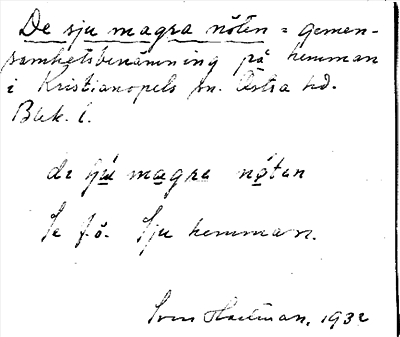 De sju magra nöten = gemen-
samhetsbenämning på hemman
i Kristianopels sn. Östra hd.
Blek. l.
de ʃú magra nötən
Se fö. Sju hemman.
Sven Hallman, 1932